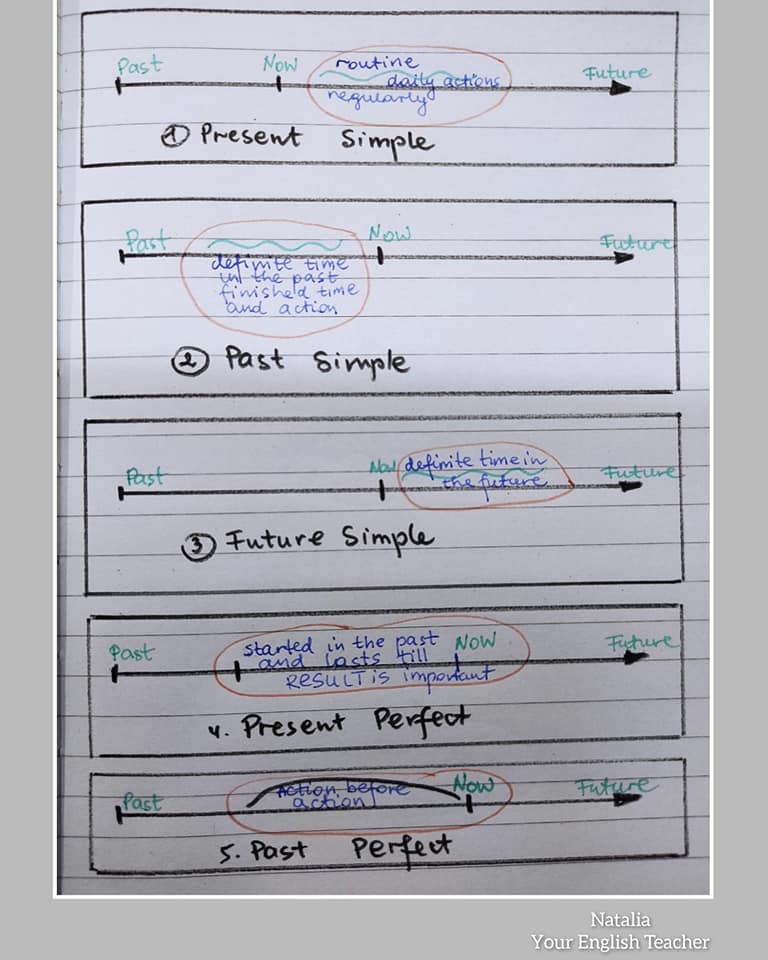 Past Now routine Future
daily actions
regularly
① Present Simple
Past Now Future
definite time
in the past
finished time
and action
② Past Simple
Past Now definite time in Future
the future
③ Future Simple
Past started in the past Now Future
and lasts till
RESULT is important
4. Present Perfect
Past Action before Now Future
action
5. Past Perfect
Natalia
Your English Teacher